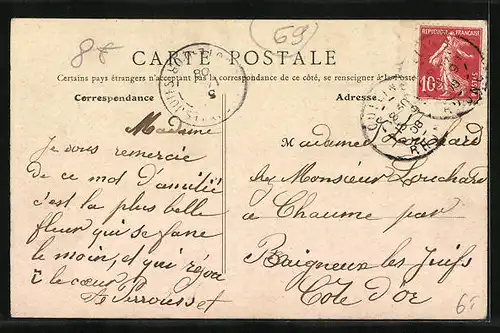 8f
69
CARTE POSTALE
Certains pays étrangers n'acceptant pas la correspondance de ce côté, se renseigner à la Poste
Correspondance
Adresse
REPUBLIQUE FRANÇAISE
10c
Madame
Je vous remercie
de ce mot d'amitié
c'est la plus belle
fleur qui se fane
le moin, et qui
le cœur
Perrousset
Madame Louchard
chez Monsieur Louchard
à Chaume par
Baigneux les Juifs
Côte d'Or